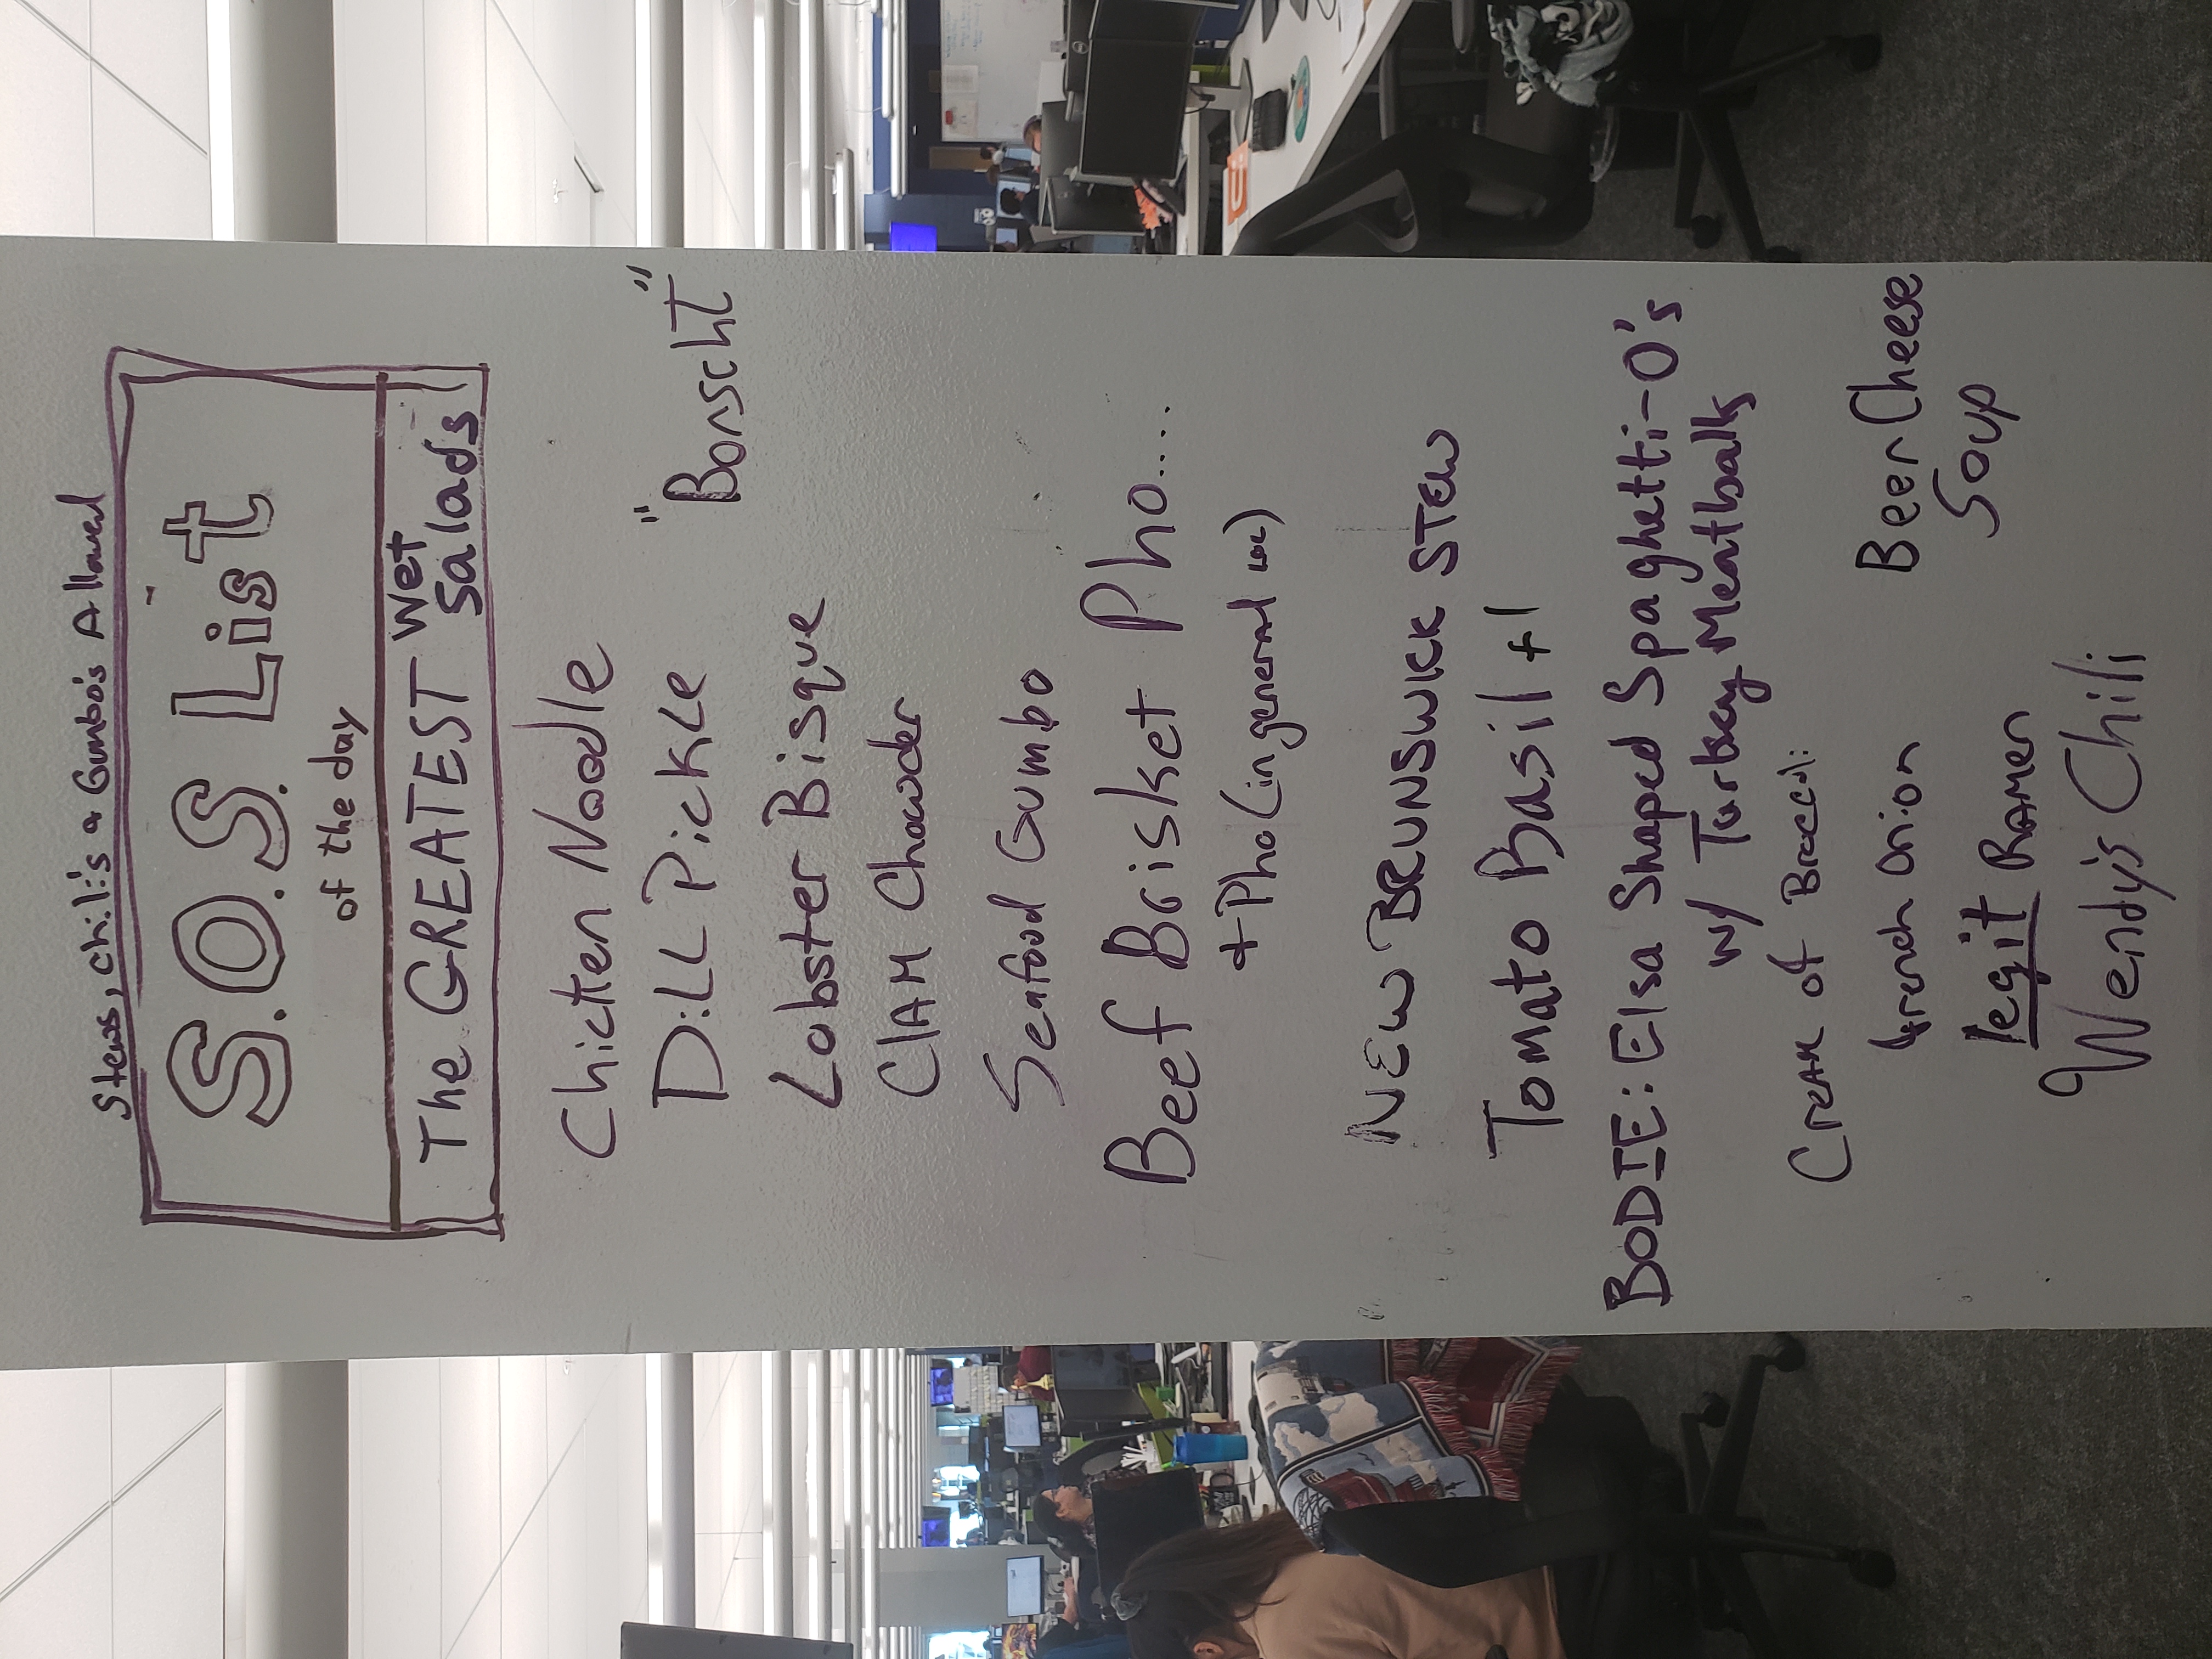 Stews, chili's & Gumbo's Allowed
S.O.S. List
of the day
The GREATEST Wet Salads
Chicken Noodle
Dill Pickle
"Borscht"
Lobster Bisque
Clam Chowder
Seafood Gumbo
Beef Brisket Pho....
+ Pho (in general lol)
NEW BRUNSWICK STEW
Tomato Basil +1
BODIE: Elsa Shaped Spaghetti-O's
w/ Turkey Meatballs
Cream of Broccoli
french Onion
Beer Cheese
Soup
legit Ramen
Wendy's Chili